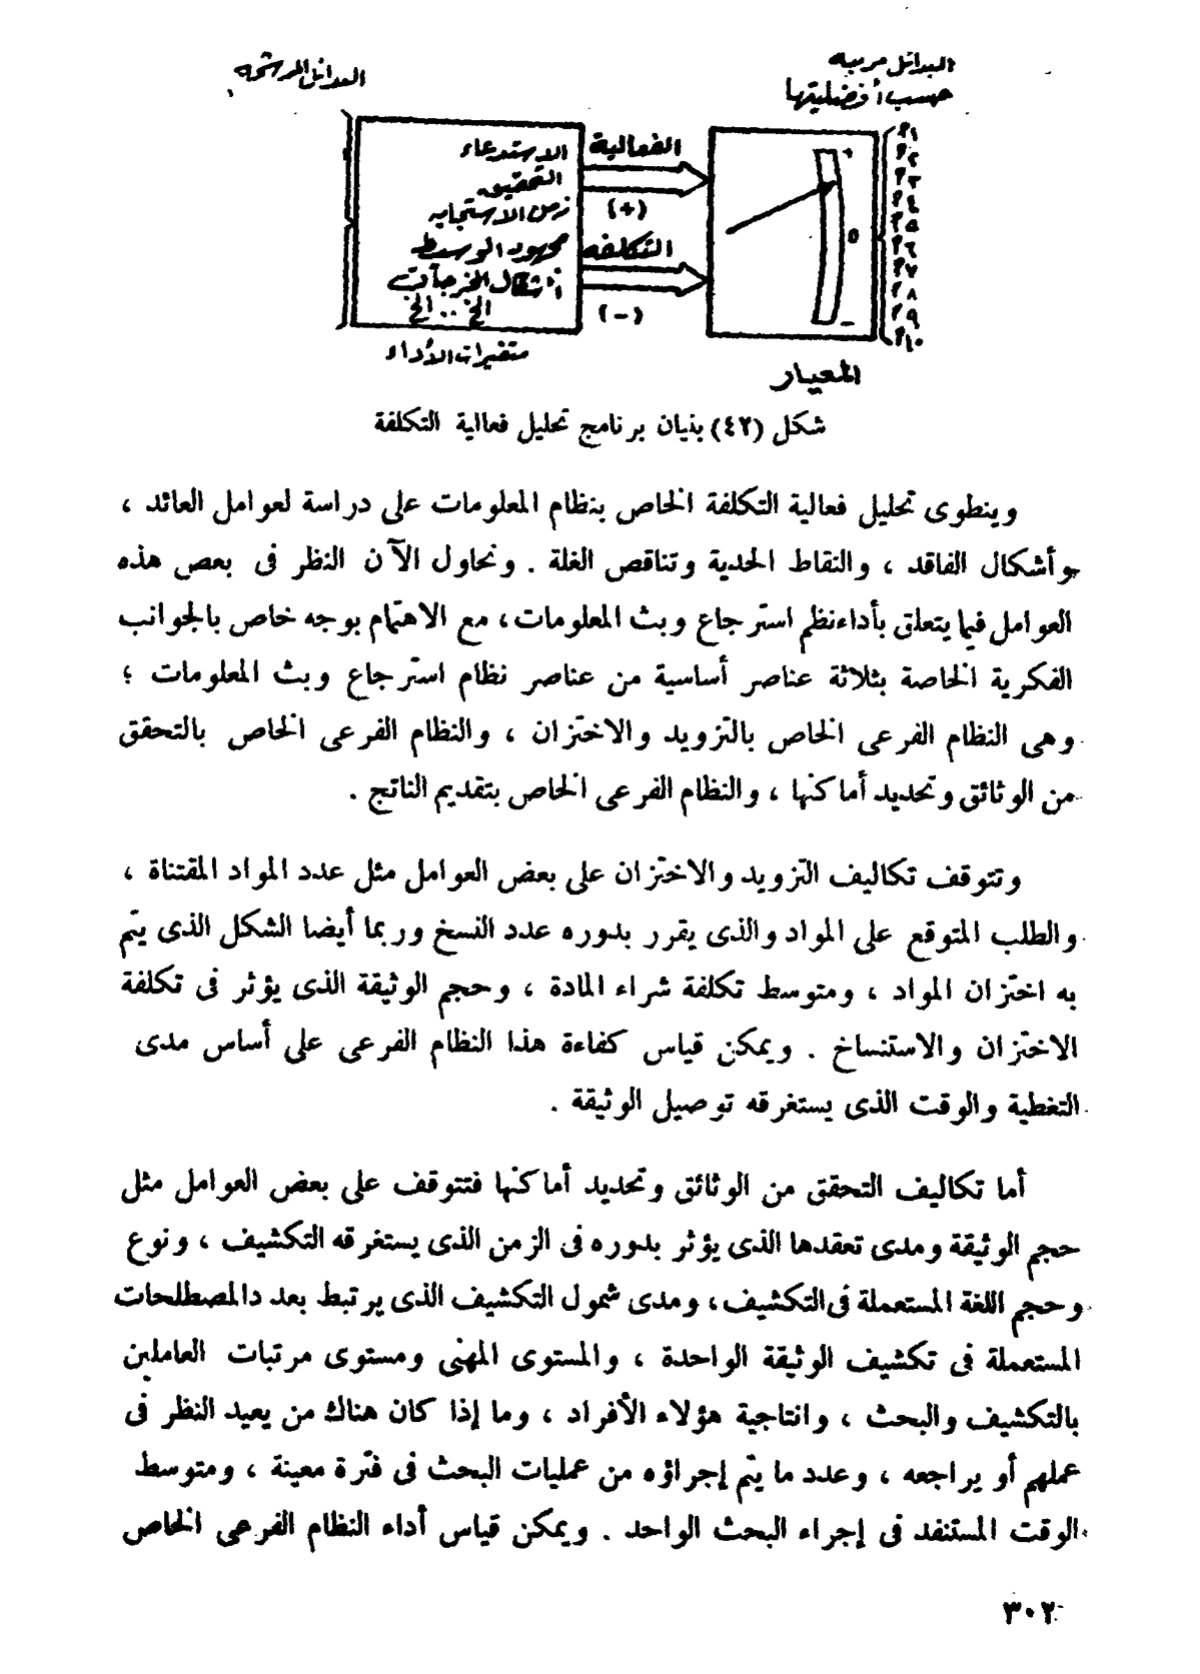 البدائل مرتبه
حسب أفضليتها
البدائل المرشحه
الاستدعاء
التحقيق
زمن الاستجابه
مجهود الوسيط
أشكال المخرجات
الخ .. الخ
متغيرات الأداء
الفعالية
(+)
التكلفه
(-)
+
٥
-
المعيار
م١
م٢
م٣
م٤
م٥
م٦
م٧
م٨
م٩
م١٠
شكل (٤٢) بنيان برنامج تحليل فعالية التكلفة
وينطوى تحليل فعالية التكلفة الخاص بنظام المعلومات على دراسة لعوامل العائد ،
وأشكال الفاقد ، والنقاط الحدية وتناقص الغلة . ونحاول الآن النظر فى بعض هذه
العوامل فيما يتعلق بأداء نظم استرجاع وبث المعلومات ، مع الاهتمام بوجه خاص بالجوانب
الفكرية الخاصة بثلاثة عناصر أساسية من عناصر نظام استرجاع وبث المعلومات ؛
وهى النظام الفرعى الخاص بالتزويد والاختزان ، والنظام الفرعى الخاص بالتحقق
من الوثائق وتحديد أماكنها ، والنظام الفرعى الخاص بتقديم الناتج .
وتتوقف تكاليف التزويد والاختزان على بعض العوامل مثل عدد المواد المقتناة ،
والطلب المتوقع على المواد والذى يقرر بدوره عدد النسخ وربما أيضا الشكل الذى يتم
به اختزان المواد ، ومتوسط تكلفة شراء المادة ، وحجم الوثيقة الذى يؤثر فى تكلفة
الاختزان والاستنساخ . ويمكن قياس كفاءة هذا النظام الفرعى على أساس مدى
التغطية والوقت الذى يستغرقه توصيل الوثيقة .
أما تكاليف التحقق من الوثائق وتحديد أماكنها فتتوقف على بعض العوامل مثل
حجم الوثيقة ومدى تعقدها الذى يؤثر بدوره فى الزمن الذى يستغرقه التكشيف ، ونوع
وحجم اللغة المستعملة فى التكشيف ، ومدى شمول التكشيف الذى يرتبط بعدد المصطلحات
المستعملة فى تكشيف الوثيقة الواحدة ، والمستوى المهنى ومستوى مرتبات العاملين
بالتكشيف والبحث ، وانتاجية هؤلاء الأفراد ، وما إذا كان هناك من يعيد النظر فى
عملهم أو يراجعه ، وعدد ما يتم إجراؤه من عمليات البحث فى فترة معينة ، ومتوسط
الوقت المستنفد فى إجراء البحث الواحد . ويمكن قياس أداء النظام الفرعى الخاص
٣٠٢